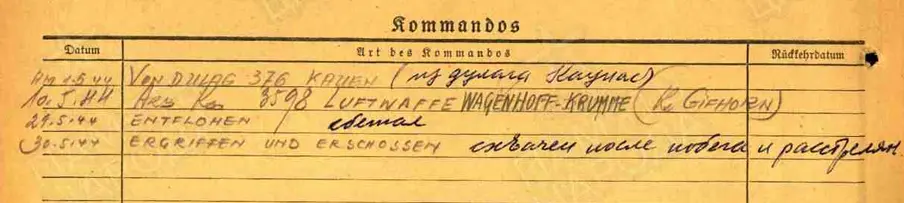 Kommandos
Datum Art des Kommandos Rückkehrdatum
Am 1.5.44 VON DULAG 376 KAUEN (из дулага Каунас)
10.5.44 3598 LUFTWAFFE WAGENHOFF-KRUMME (K. GIFHORN)
29.5.44 ENTFLOHEN сбежал
30.5.44 ERGRIFFEN UND ERSCHOSSEN схвачен после побега и расстрелян